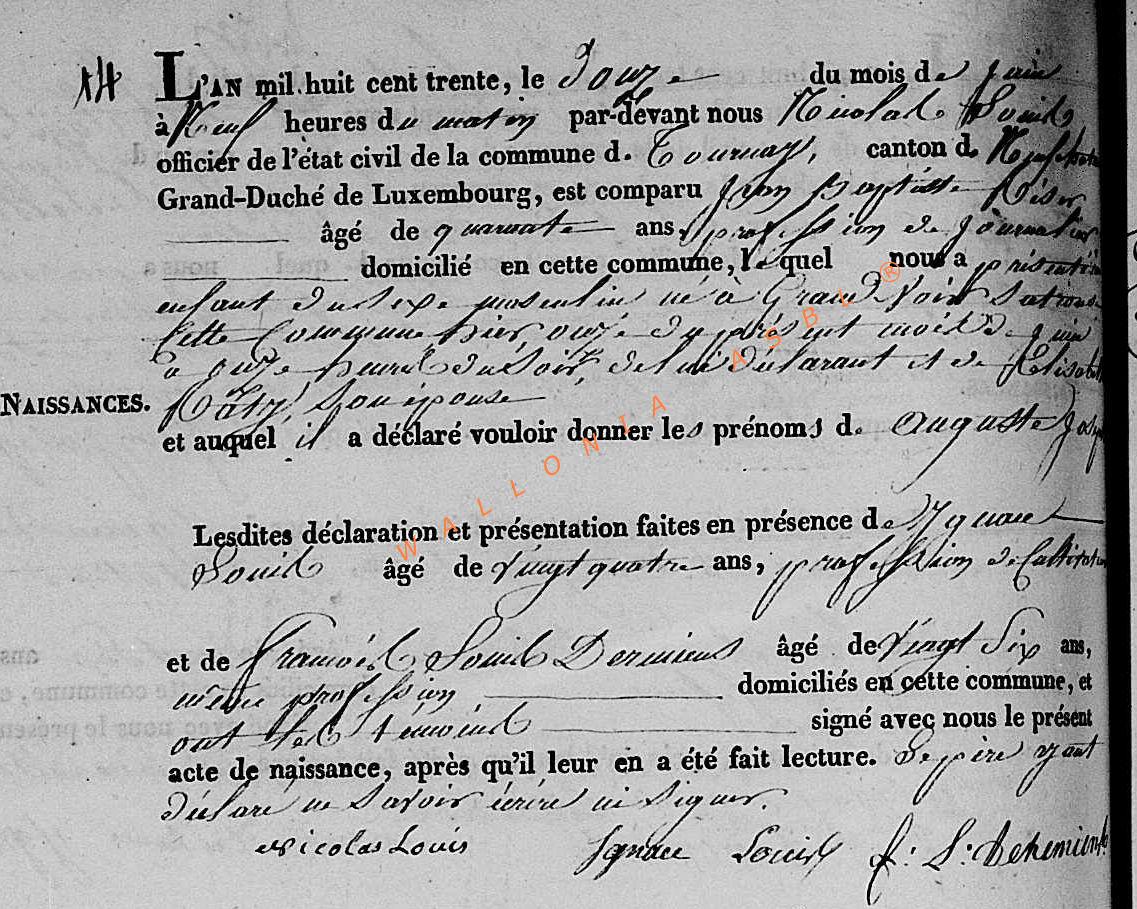 14
L'AN mil huit cent trente, le Douze du mois de juin
à Neuf heures du matin par-devant nous Nicolas Louis
officier de l'état civil de la commune d. Tournay, canton d. Neufchateau
Grand-Duché de Luxembourg, est comparu Jean Baptiste
âgé de quarante ans, profession de journalier
domicilié en cette commune, lequel nous a présenté un
enfant du sexe masculin né à Grand Voir Sections
cette commune hier, onze du présent mois de juin
à onze heures du soir, de lui déclarant et de Elisabeth
NAISSANCES. son épouse
et auquel il a déclaré vouloir donner les prénoms d. Auguste Joseph
Lesdites déclaration et présentation faites en présence de Ignace
Louis âgé de vingt quatre ans, profession de Cultivateur
et de François Louis âgé de vingt Six ans,
même profession domiciliés en cette commune, et
ont les témoins signé avec nous le présent
acte de naissance, après qu'il leur en a été fait lecture. Le père ayant
déclaré ne savoir écrire ni signer.
Nicolas Louis Ignace Louis f: L:
WALLONIA ASBL ®